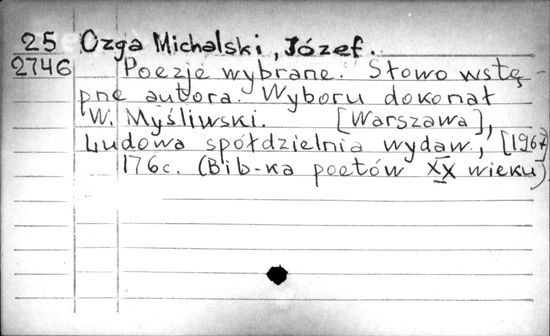 25 Ozga Michalski, Józef.
2746 Poezje wybrane. Słowo wstę-
pne autora. Wyboru dokonał
W. Myśliwski. [Warszawa],
Ludowa spółdzielnia wydaw., [1967]
176c. (Bib-ka poetów XX wieku)